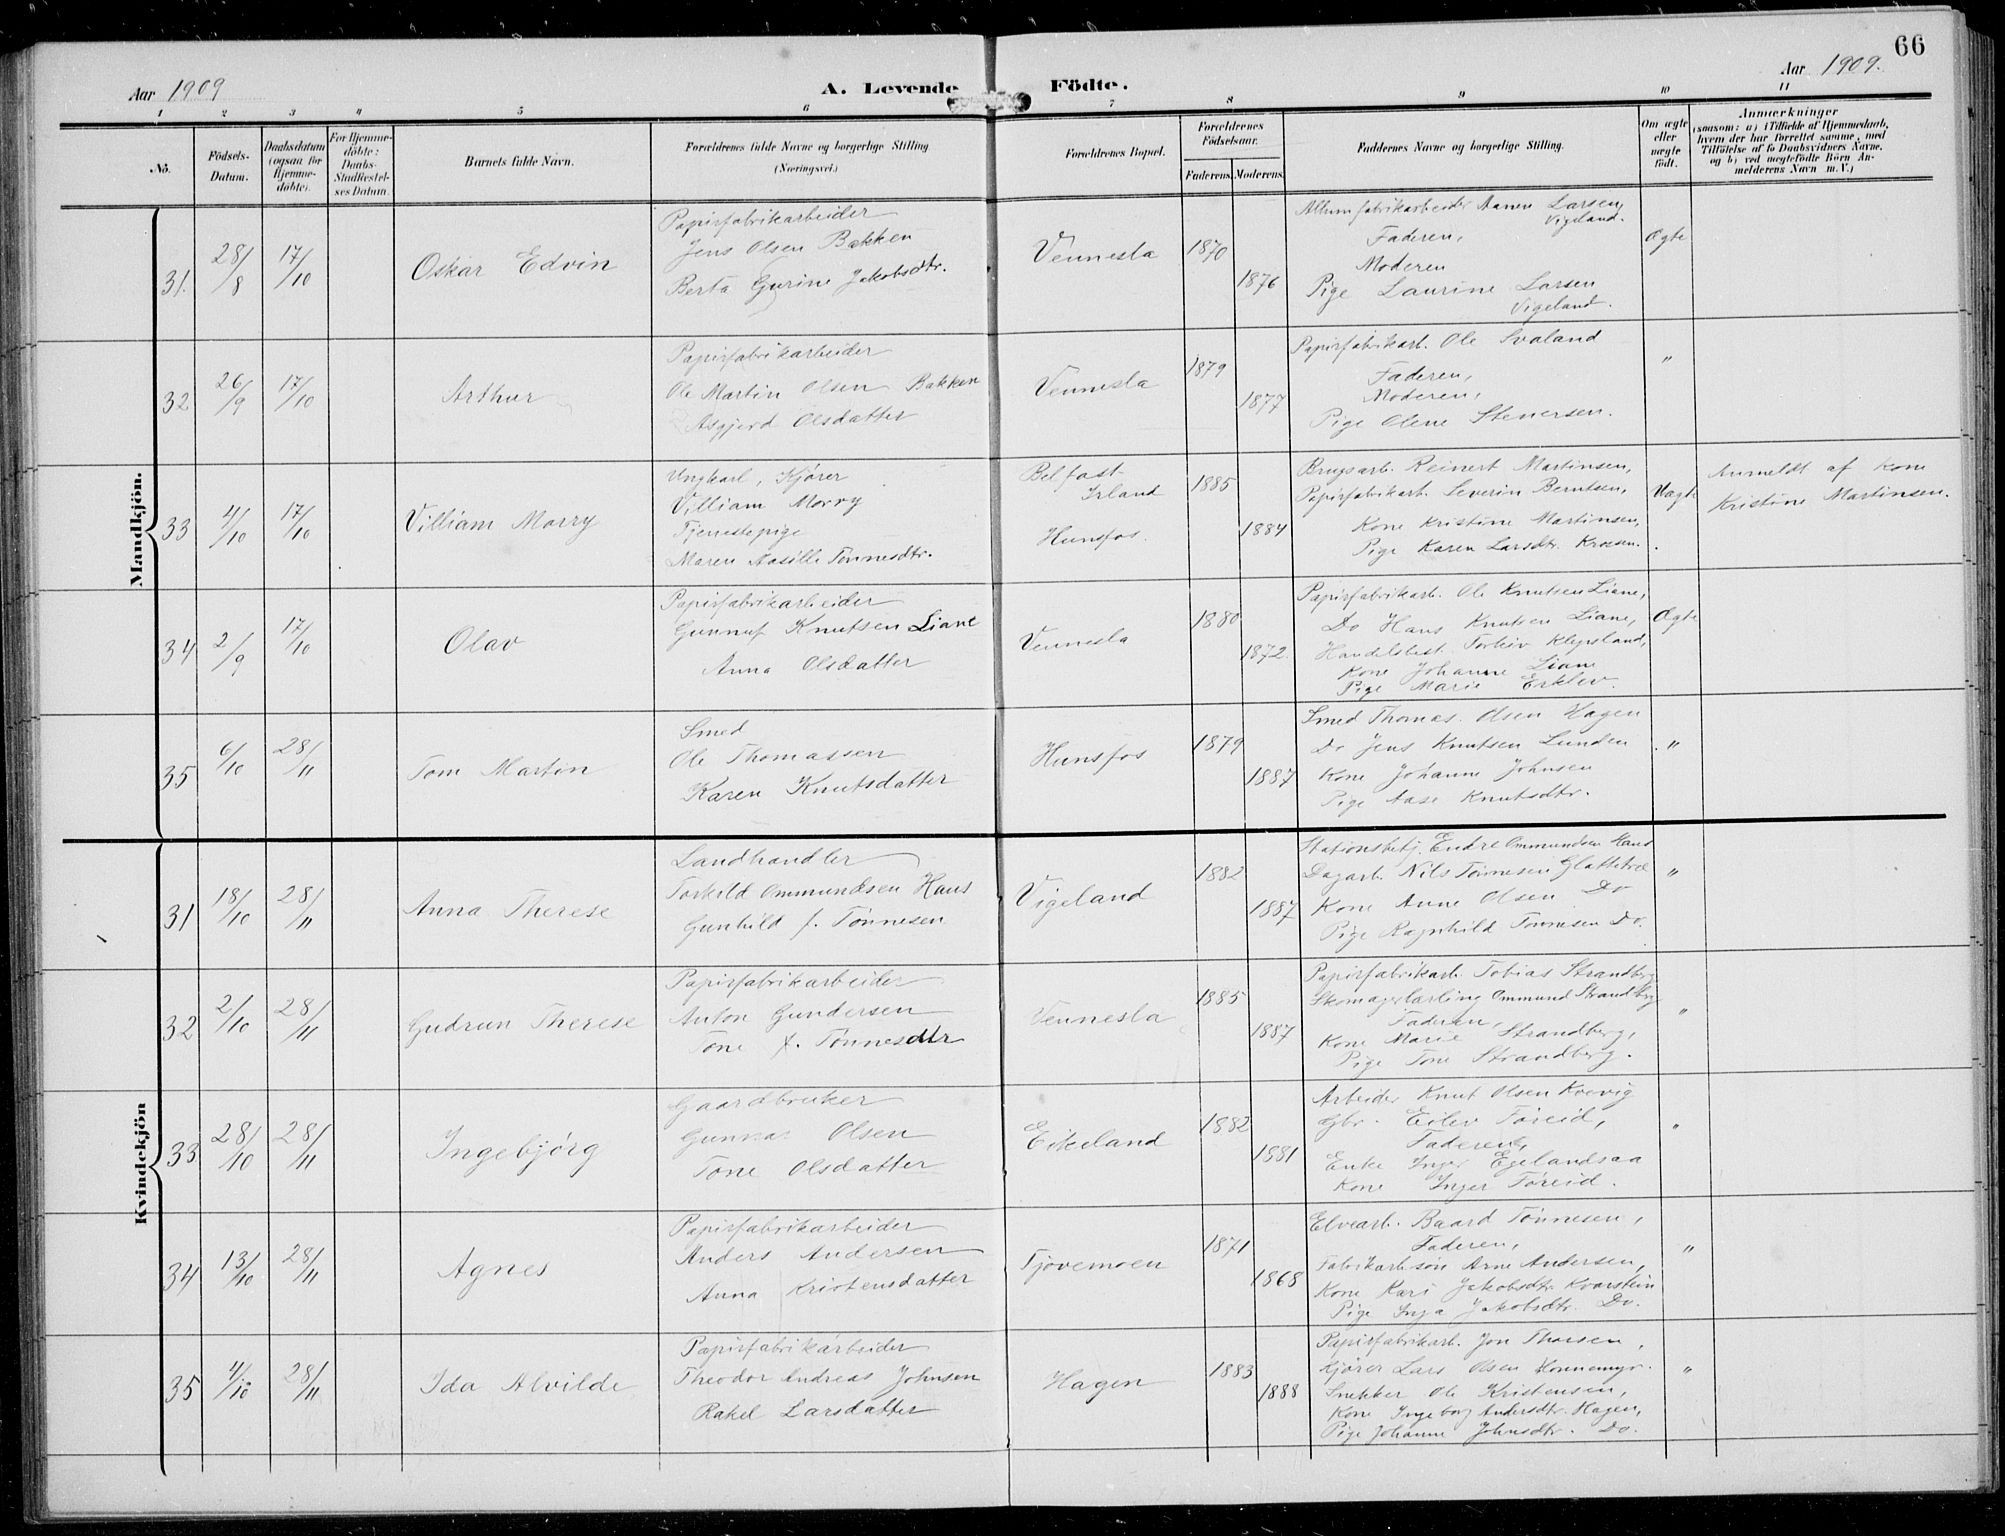 66
Aar 1909
A. Levende Födte.
Aar 1909.
1 2 3 4 5 6 7 8 9 10 11
No. Födsels-Datum. Daabsdatum (ogsaa for Hjemme-döbte). For Hjemme-döbte: Daabs-Stadfæstel-ses Datum. Barnets fulde Navn. Forældrenes fulde Navne og borgerlige Stilling (Næringsvei.) Forældrenes Bopæl. Forældrenes Födselsaar. Faderens. Moderens. Faddernes Navne og borgerlige Stilling. Om ægte eller uægte født. Anmærkninger (saasom: a) i Tilfælde af Hjemmedaab, hvem der har forrettet samme, med Tilföielse af to Daabsvidners Navne, og b) ved uægtefödte Börn An-melderens Navn m. V.)
Mandkjön.
31. 28/8 17/10 Oskar Edvin
Papirfabrikarbeider
Jens Olsen Bakken
Berta Gurine Jakobsdtr.
Vennesla 1870 1876
Allumfabrikarbeider Aanen Larsen,
Vigeland.
Faderen,
Moderen
Pige Laurine Larsen
Vigeland.
Ægte
32 26/9 17/10 Arthur
Papirfabrikarbeider
Ole Martin Olsen Bakken
Asgjerd Olsdatter
Vennesla 1879 1877
Papirfabrikarb. Ole Svaland
Faderen,
Moderen,
Pige Olene Stenersen.
"
33 4/10 17/10 Villiam Morry
Ungkarl, Kjører
Villiam Morry
Tjenestepige
Maren Aasille Tønnesdtr.
Belfast
Irland
Hunsfos. 1885 1884
Brugsarb. Reinert Martinsen,
Papirfabrikarb. Severin Berntsen,
Kone Kristine Martinsen,
Pige Karen Larsdtr. Kroen.
Uægte
Anmeldt af Kone
Kristine Martinsen.
34 2/9 17/10 Olav
Papirfabrikarbeider
Gunnuf Knutsen Liane
Anna Olsdatter
Vennesla 1880 1872.
Papirfabrikarb. Ole Knutsen Liane,
Do Hans Knutsen Liane,
Handelsbest. Torkiv Klepsland,
Kone Johanne Liane
Pige Marie Erklev.
Ægte
35 6/10 28/11 Tom Martin
Smed
Ole Thomassen
Karen Knutsdatter
Hunsfos 1879 1887
Smed Thomas Olsen Hagen
Do Jens Knutsen Lunden
Kone Johanne Johnsen
Pige Aase Knutsdtr.
"
Kvindekjön
31 18/10 28/11 Anna Therese
Landhandler
Torkild Ommundsen Haus
Gunhild f. Tønnesen
Vigeland 1882 1887
Stationsbetj. Endre Ommundsen Haus
Dagarb. Nils Tønnesen Glattetræ
Kone Anne Olsen Do
Pige Ragnhild Tønnesen Do.
"
32 2/10 28/11 Gudrun Therese
Papirfabrikarbeider
Anton Gundersen
Tone f. Tønnesdtr
Vennesla 1885 1887
Papirfabrikarb. Tobias Strandberg
Skomagerlærling Ommund Strandberg
Faderen,
Kone Marie Strandberg,
Pige Tone Strandberg.
"
33 28/10 28/11 Ingebjørg
Gaardbruker
Gunnar Olsen
Tone Olsdatter
Eikeland 1882 1881
Arbeider Knut Olsen Kvevig
Gbr. Eilev Føreid,
Faderen,
Enke Inger Egelandsaa
Kone Inger Føreid.
"
34 13/10 28/11 Agnes
Papirfabrikarbeider
Anders Andersen
Anna Kristensdatter
Tjovemoen 1871 1868
Elvearb. Baard Tønnesen,
Faderen,
Fabrikarb.søn Arne Andersen,
Kone Kari Jakobsdtr Kvarstein
Pige Inga Jakobsdtr. Do.
"
35 4/10 28/11 Ida Alvilde
Papirfabrikarbeider
Theodor Andreas Johnsen
Rakel Larsdatter
Hagen 1883 1888
Papirfabrikarb. Jon Thorsen,
Kjører Lars Olsen Honnemyr.
Snekker Ole Kristensen,
Kone Ingeborg Andersdtr. Hagen,
Pige Johanne Johnsdtr. Do.
"